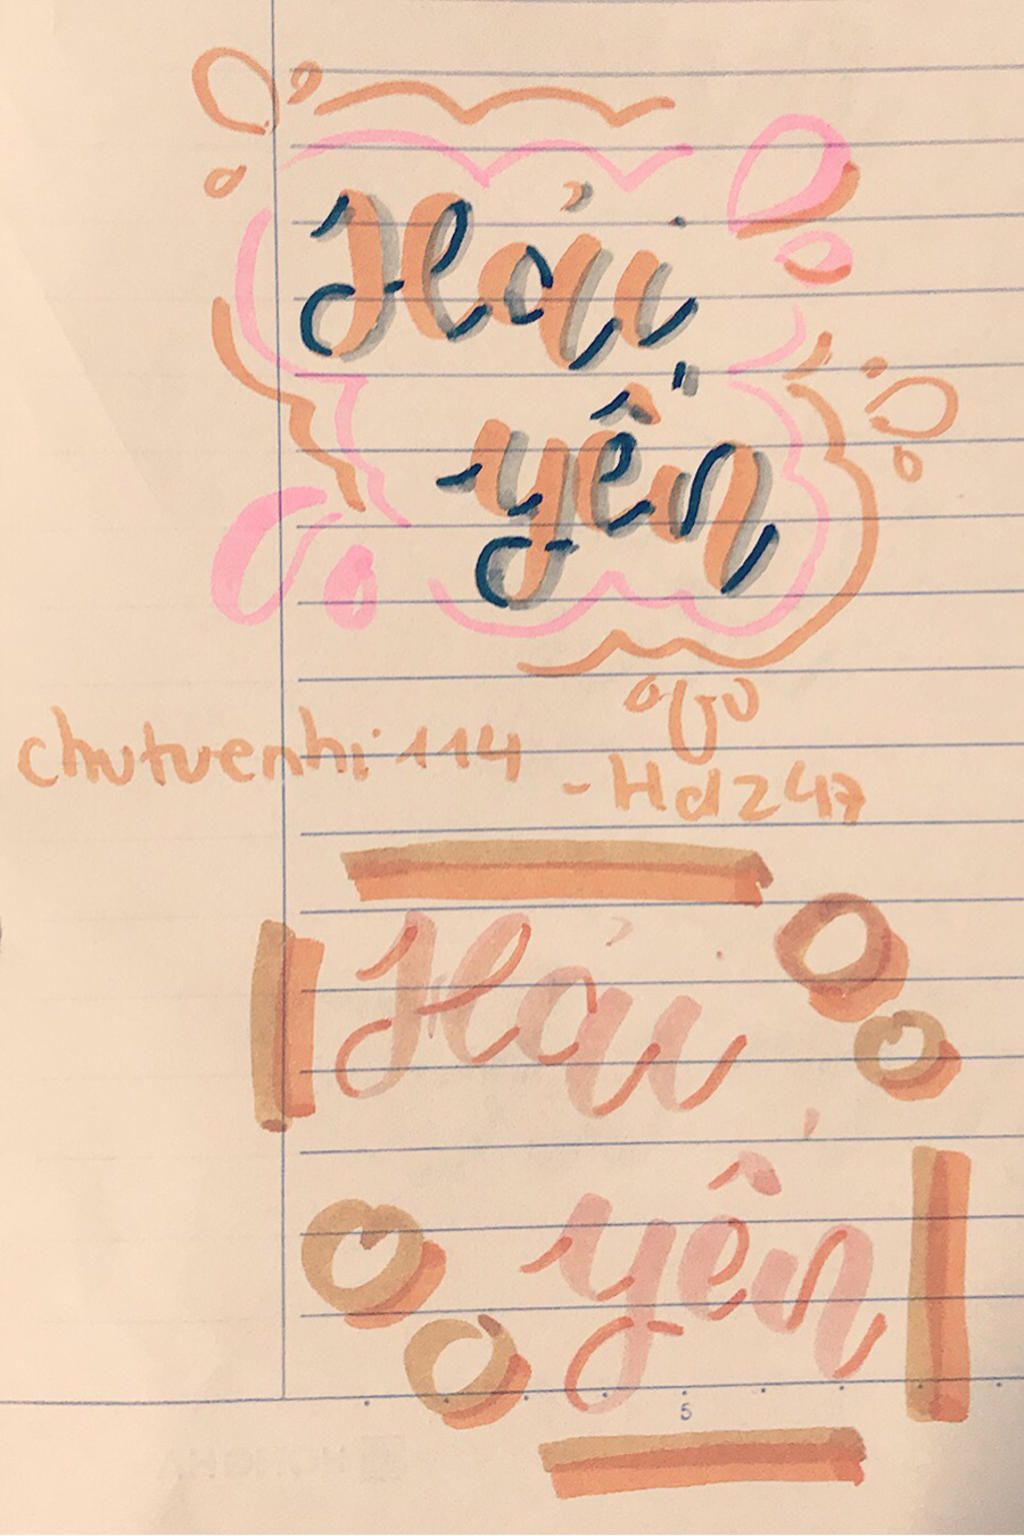 Hải
yến
chutuenhi 114
- Hd247
Hải
yến
5